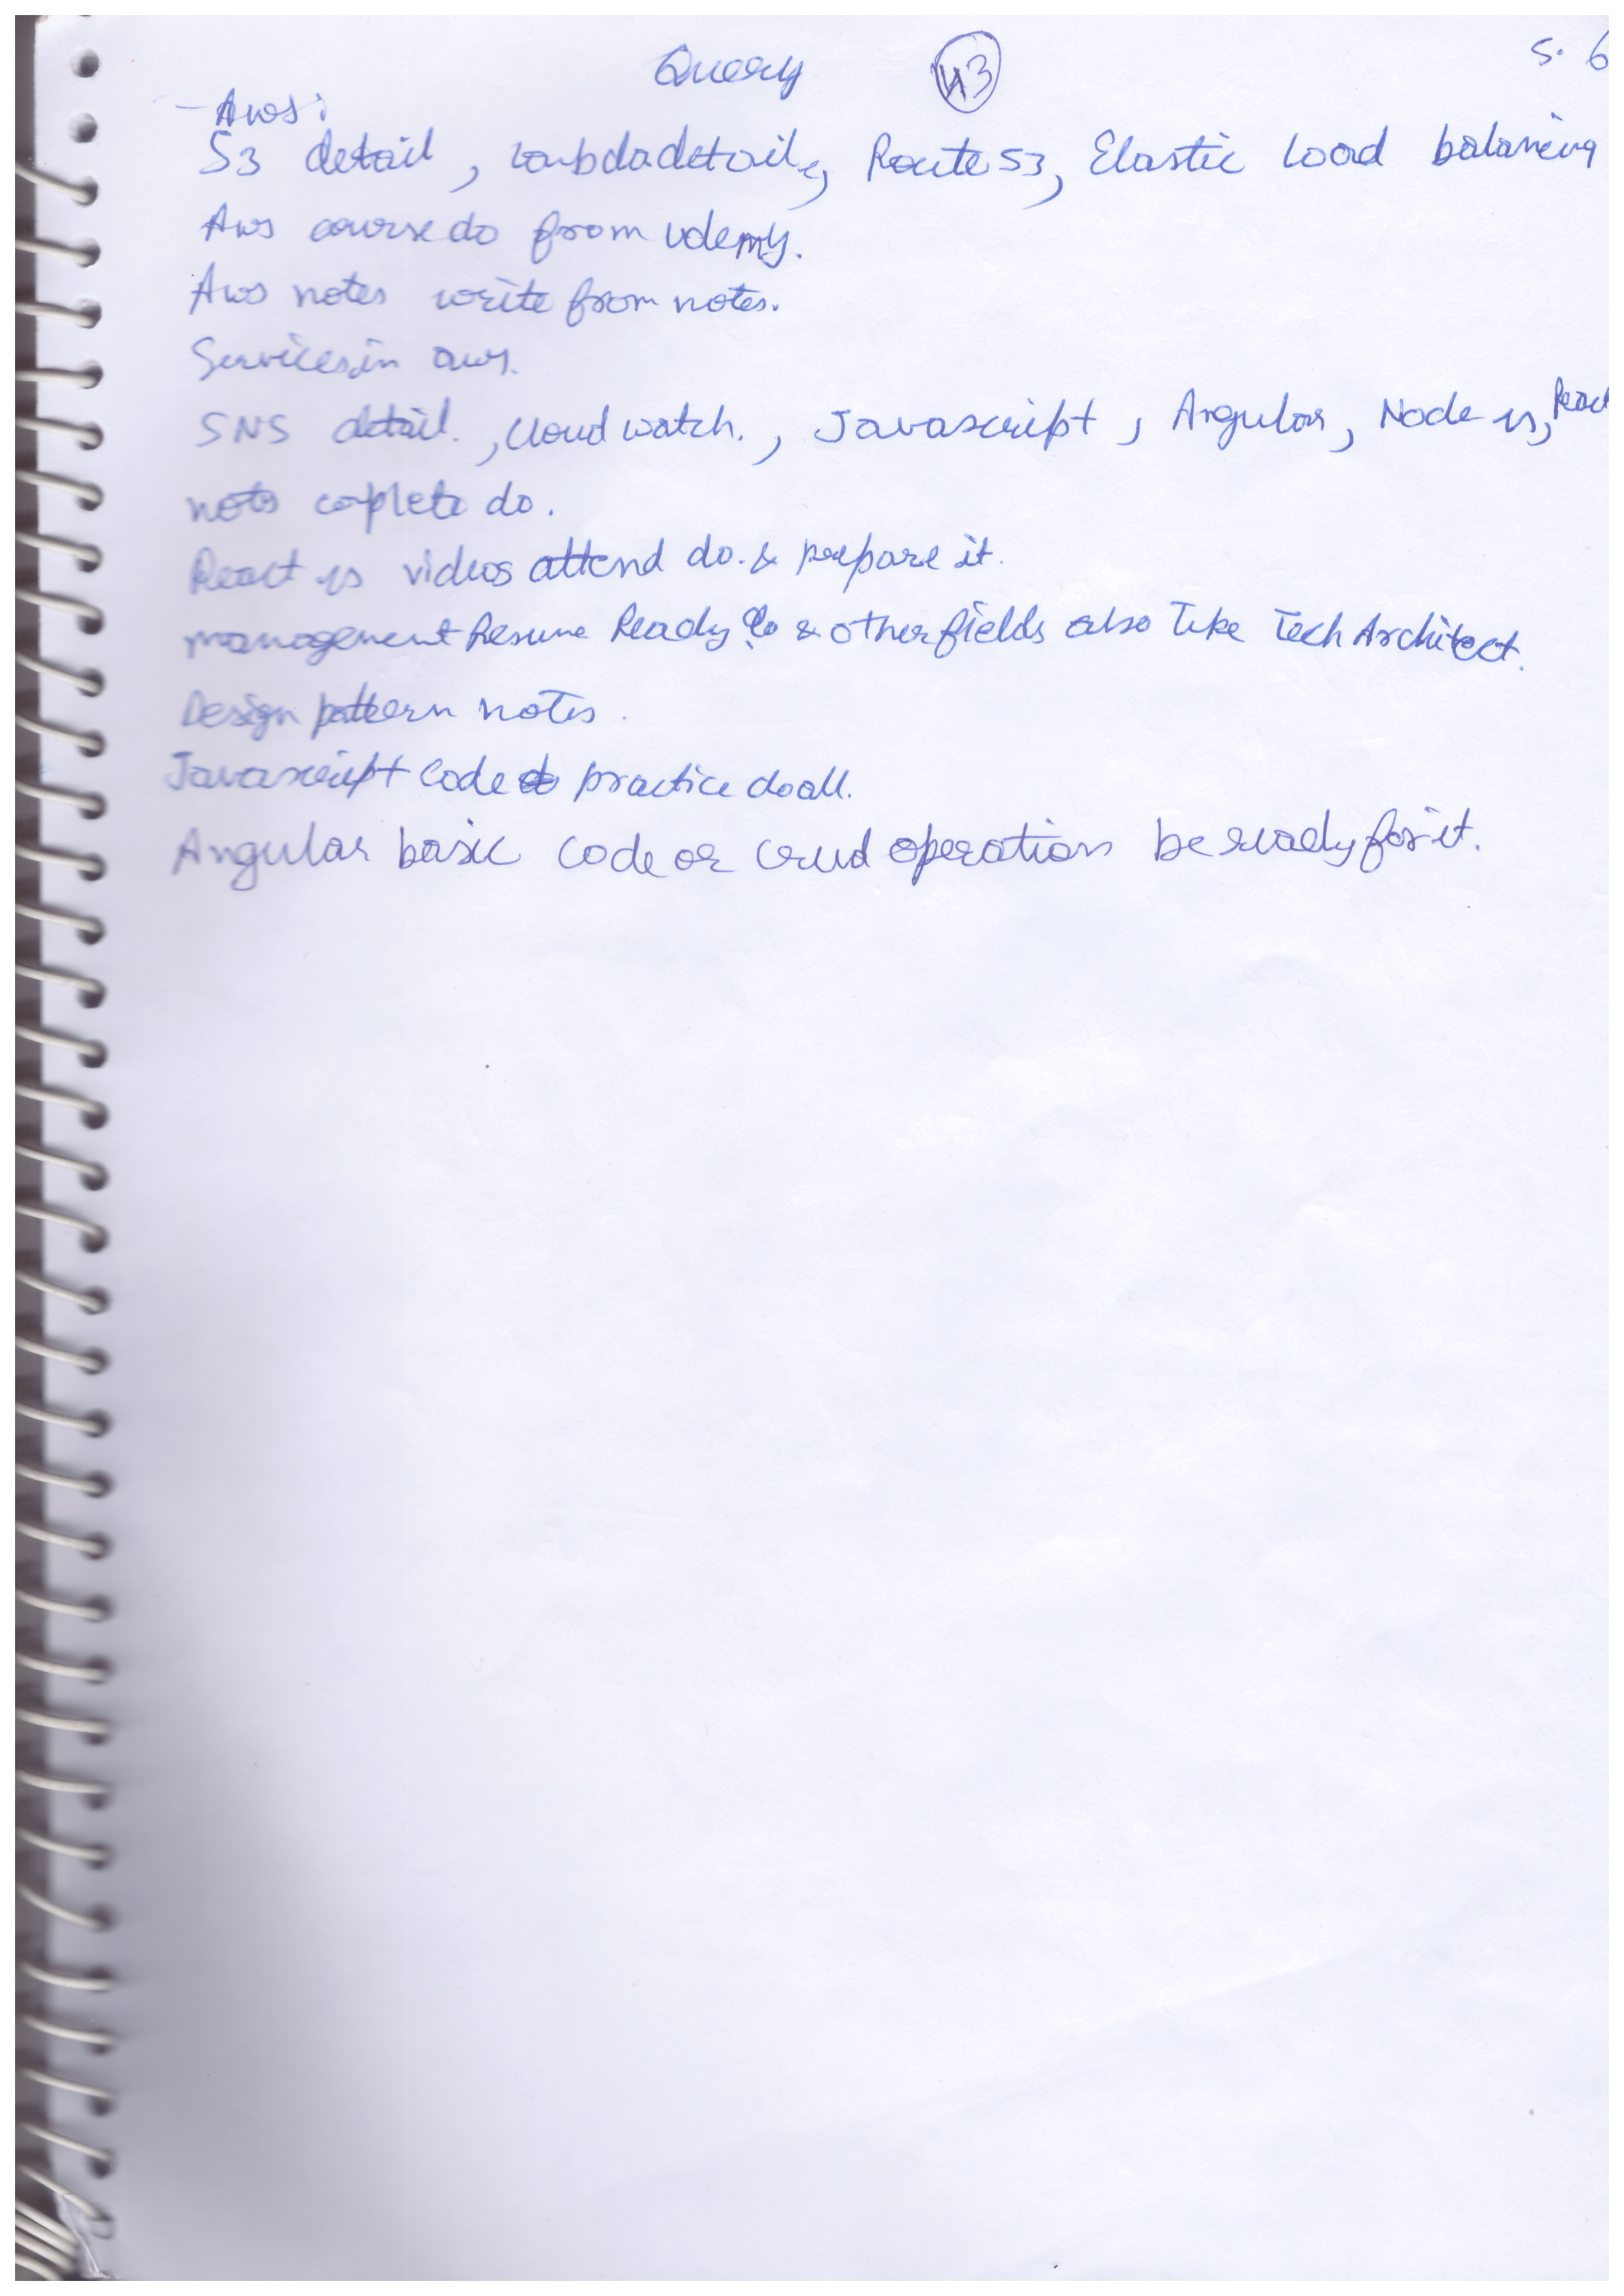 Query 43 5. 6
- Aws:
S3 detail, Lambda details, Route 53, Elastic Load balancing
Aws course do from Udemy.
Aws notes write from notes.
Services in aws.
SNS detail. , Cloud watch. , Javascript, Angular, Node js, React
notes coplete do.
React js videos attend do. & prepare it.
management Resume Ready do & other fields also Like Tech Architect.
Design pattern notes.
Javascript Code do practice do all.
Angular basic code or crud operations be ready for it.